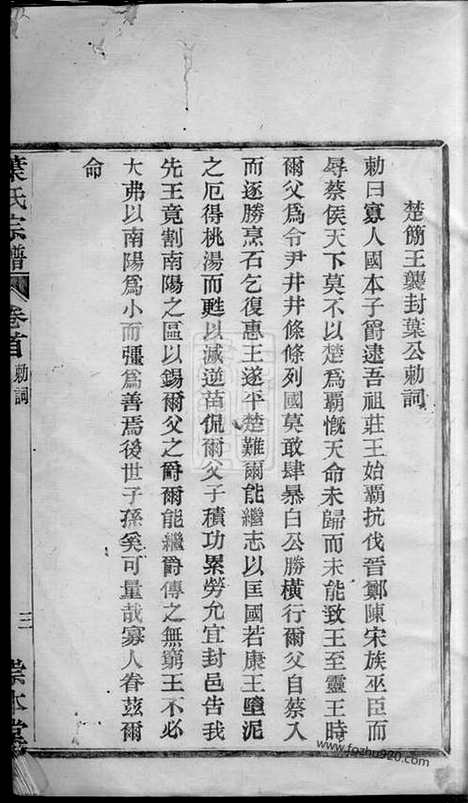 楚簡王襲封葉公勅詞
勅曰寡人國本子爵逮吾祖莊王始霸抗伐晉鄭陳宋族巫臣而
辱蔡侯天下莫不以楚爲霸慨天命未歸而未能致王至靈王時
爾父爲令尹井井條條列國莫敢肆暴白公勝橫行爾父自蔡入
而逐勝烹石乞復惠王遂平楚難爾能繼志以匡國若康王墮泥
之厄得桃湯而甦以滅逆苗侃爾父子積功累勞允宜封邑告我
先王竟割南陽之區以錫爾父之爵爾能繼爵傳之無窮王不必
大弗以南陽爲小而彊爲善焉後世子孫矣可量哉寡人眷茲爾
命
葉氏宗譜 卷首 勅詞 三 崇本堂
www.fozhu920.com